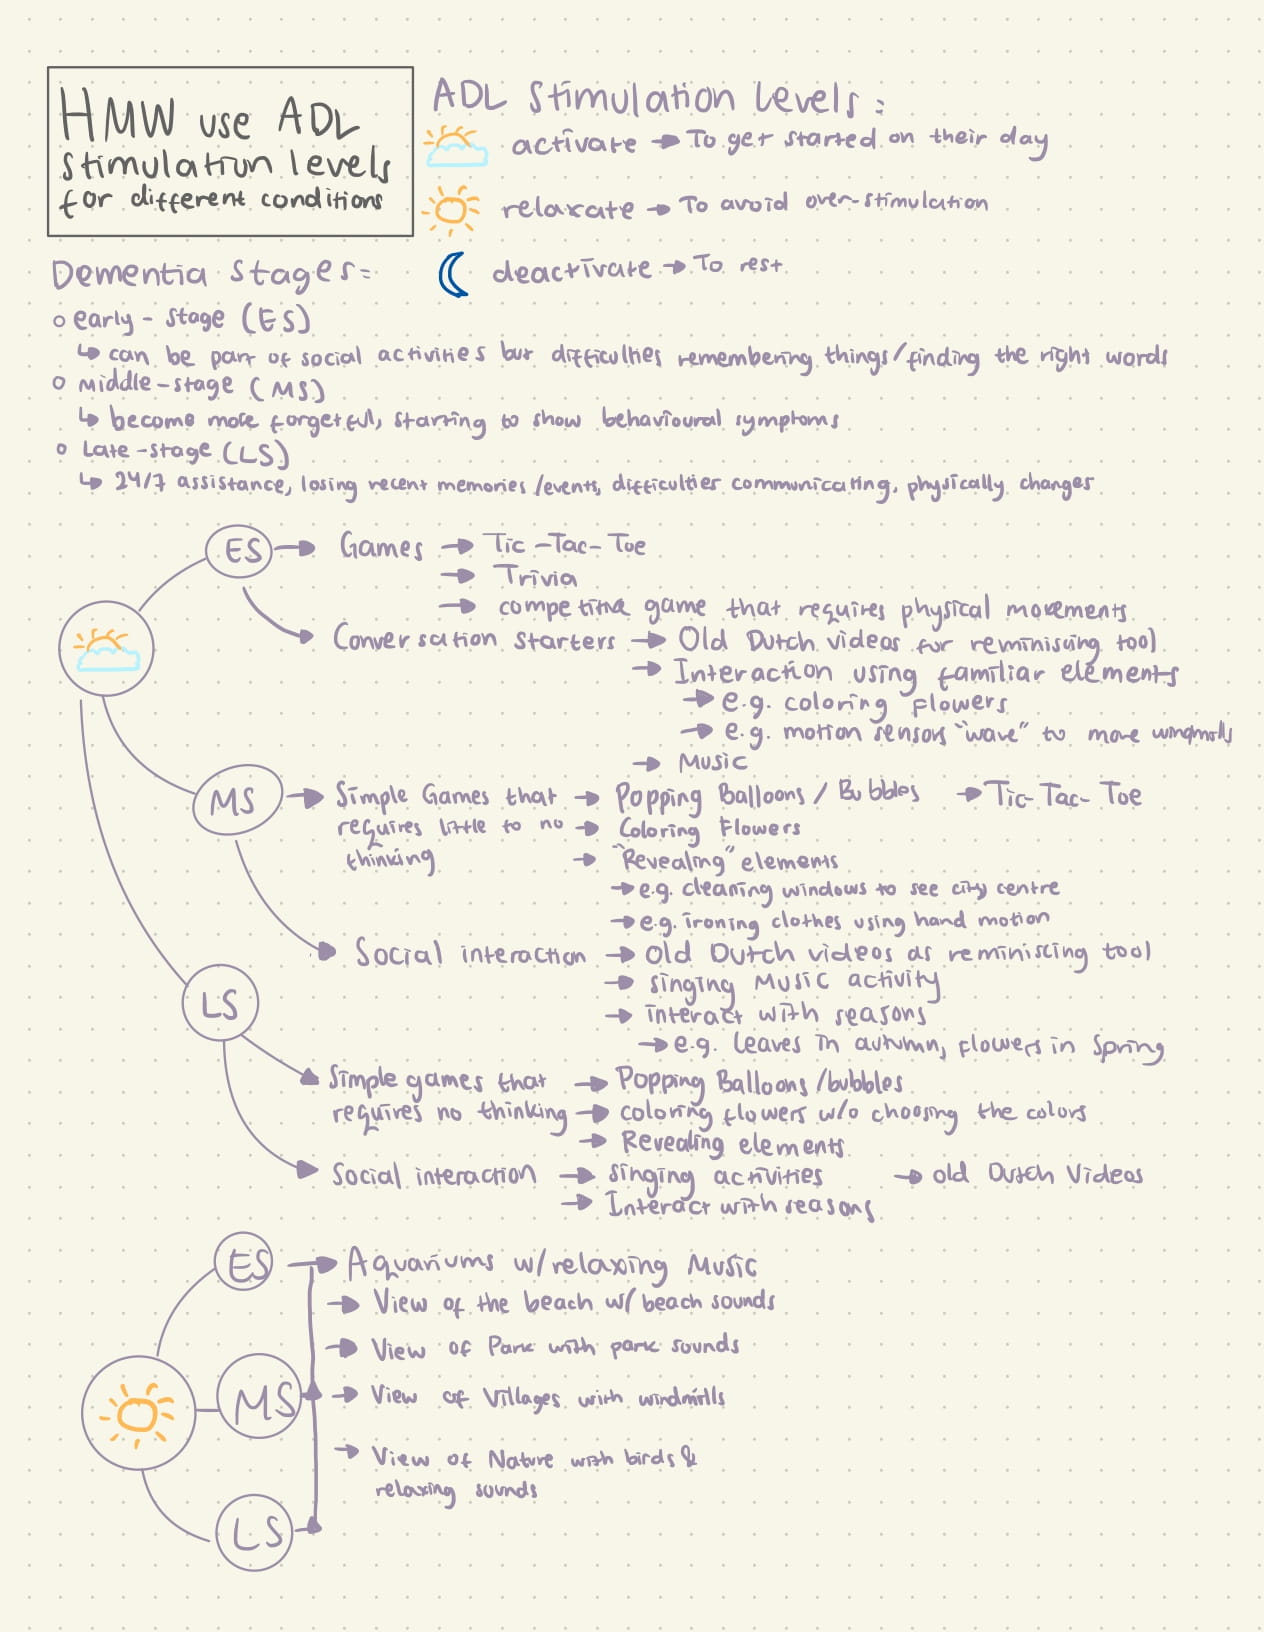 HMW use ADL
stimulation levels
for different conditions
ADL Stimulation Levels:
activate → To get started on their day
relaxate → To avoid over-stimulation
deactivate → To rest
Dementia stages:
early-stage (ES)
↳ can be part of social activities but difficulties remembering things/finding the right words
Middle-stage (MS)
↳ become more forgetful, starting to show behavioural symptoms
Late-stage (LS)
↳ 24/7 assistance, losing recent memories/events, difficulties communicating, physically changes
ES → Games → Tic-Tac-Toe
→ Trivia
→ competitive game that requires physical movements
Conversation starters → Old Dutch videos for reminising tool
→ Interaction using familiar elements
→ e.g. coloring flowers
→ e.g. motion sensors "wave" to move windmills
→ Music
MS → Simple Games that → Popping Balloons/Bubbles → Tic-Tac-Toe
requires little to no → Coloring Flowers
thinking → "Revealing" elements
→ e.g. cleaning windows to see city centre
→ e.g. ironing clothes using hand motion
Social interaction → Old Dutch videos as reminiscing tool
→ singing Music activity
→ interact with seasons
→ e.g. leaves in autumn, flowers in Spring
LS
Simple games that → Popping Balloons/bubbles
requires no thinking → coloring flowers w/o choosing the colors
→ Revealing elements
Social interaction → singing activities → old Dutch Videos
→ Interact with seasons
ES → Aquariums w/relaxing Music
→ View of the beach w/ beach sounds
→ View of Park with park sounds
MS → View of Villages with windmills
→ View of Nature with birds &
relaxing sounds
LS